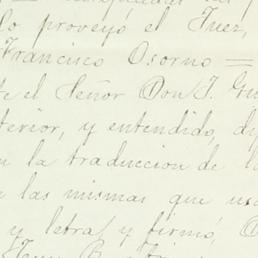 lo proveyó el Juez,
Francisco Osorno =
te el Señor Don J. Gu
terior, y entendido, di
n la traduccion de lo
e las mismas que us
y letra, y firmó,